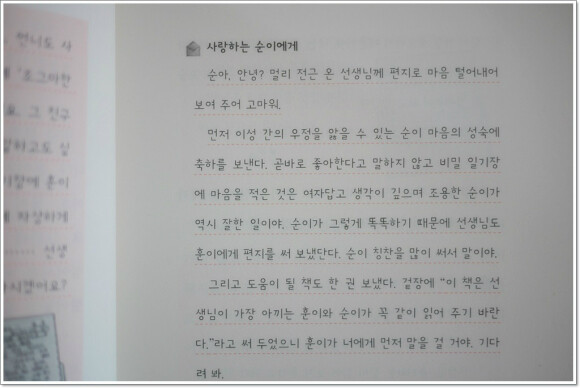 , 언니도 사
'조그마한
요. 그 친구
함에 훈이
게 자상하게
········ 선생
시겠어요?
사랑하는 순이에게
순아, 안녕? 멀리 전근 온 선생님께 편지로 마음 털어내어
보여 주어 고마워.
먼저 이성 간의 우정을 앓을 수 있는 순이 마음의 성숙에
축하를 보낸다. 곧바로 좋아한다고 말하지 않고 비밀 일기장
에 마음을 적은 것은 여자답고 생각이 깊으며 조용한 순이가
역시 잘한 일이야. 순이가 그렇게 똑똑하기 때문에 선생님도
훈이에게 편지를 써 보냈단다. 순이 칭찬을 많이 써서 말이야.
그리고 도움이 될 책도 한 권 보냈다. 겉장에 “이 책은 선
생님이 가장 아끼는 훈이와 순이가 꼭 같이 읽어 주기 바란
다.”라고 써 두었으니 훈이가 너에게 먼저 말을 걸 거야. 기다
려 봐.